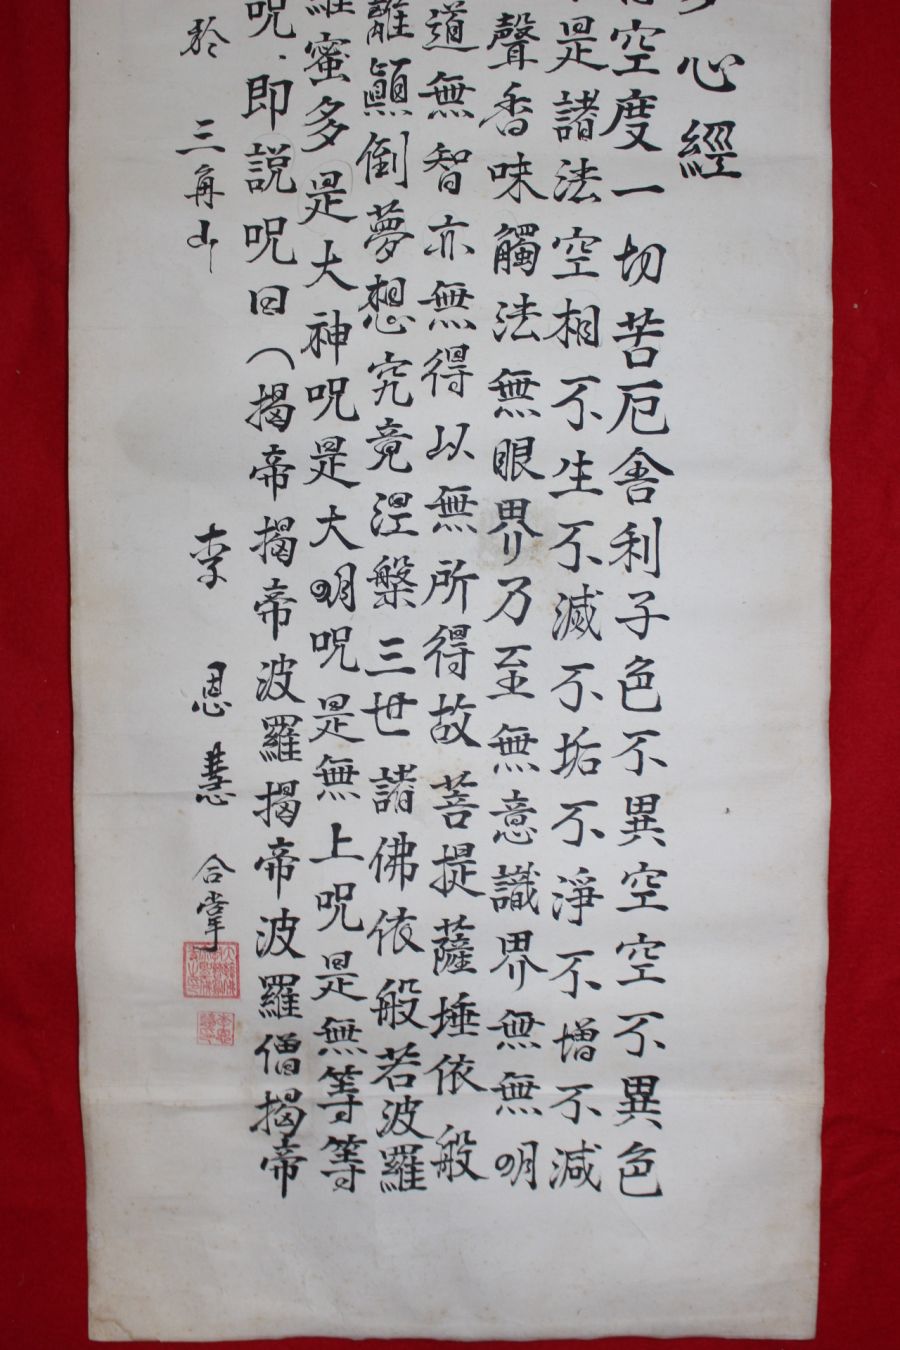 心經
空度一切苦厄舍利子色不異空空不異色
是諸法空相不生不滅不垢不淨不增不減
聲香味觸法無眼界乃至無意識界無無明
道無智亦無得以無所得故菩提薩埵依般
離顚倒夢想究竟涅槃三世諸佛依般若波羅
羅蜜多是大神呪是大明呪是無上呪是無等等
呪卽說呪曰(揭帝揭帝波羅揭帝波羅僧揭帝
於 三角山 李恩慧 合掌